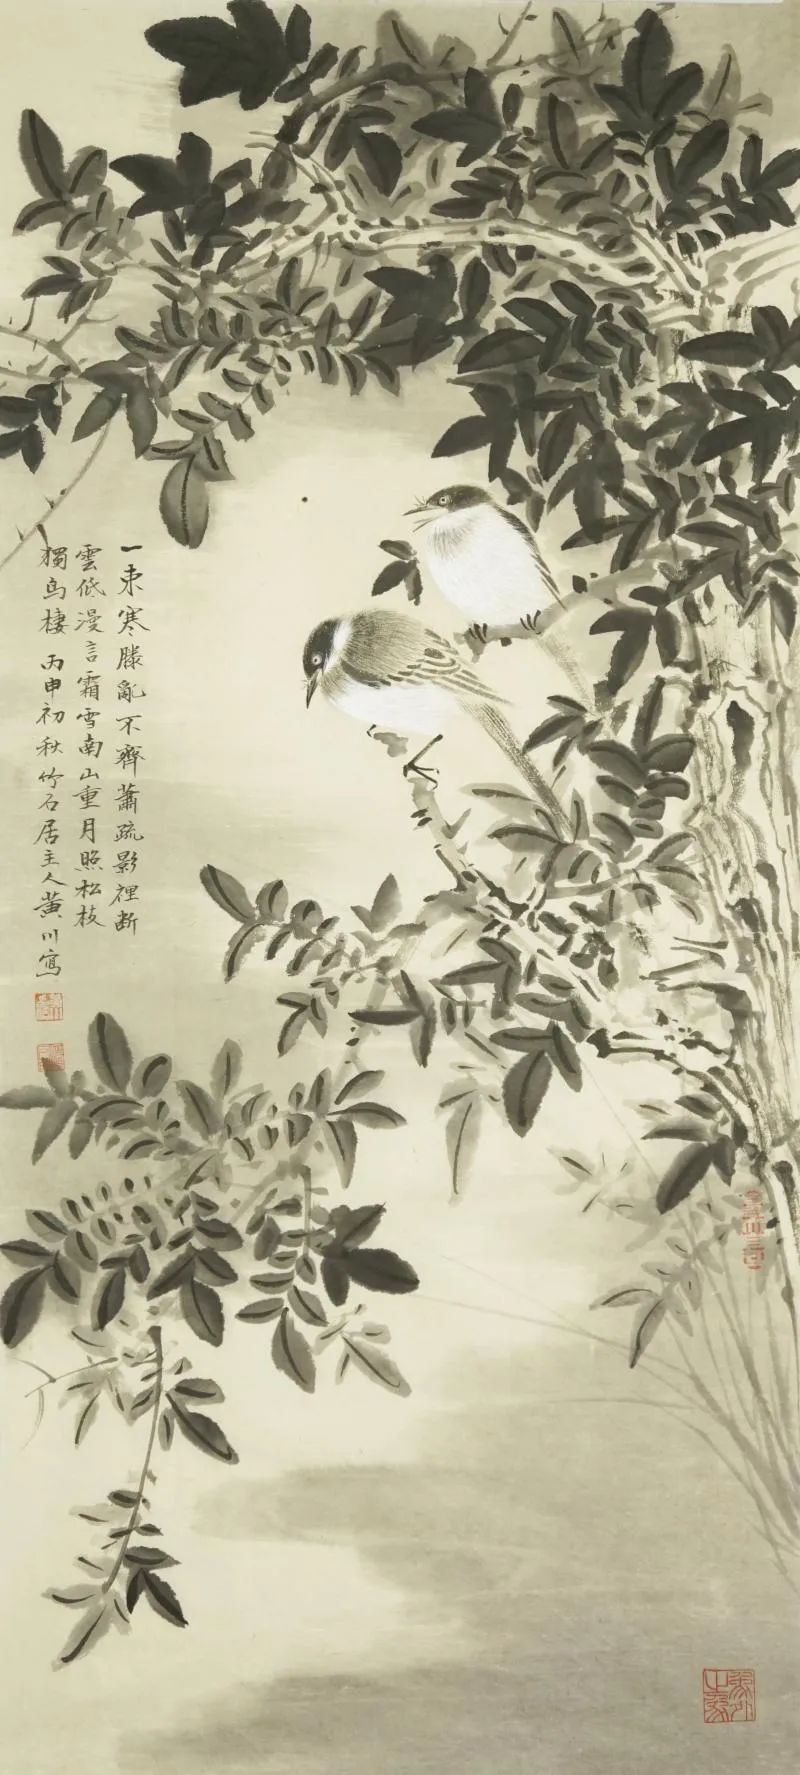 一束寒藤亂不齊蕭疏影裡断
雲低漫言霜雪南山重月照松枝
獨鸟棲 丙申初秋竹石居主人黄川寫